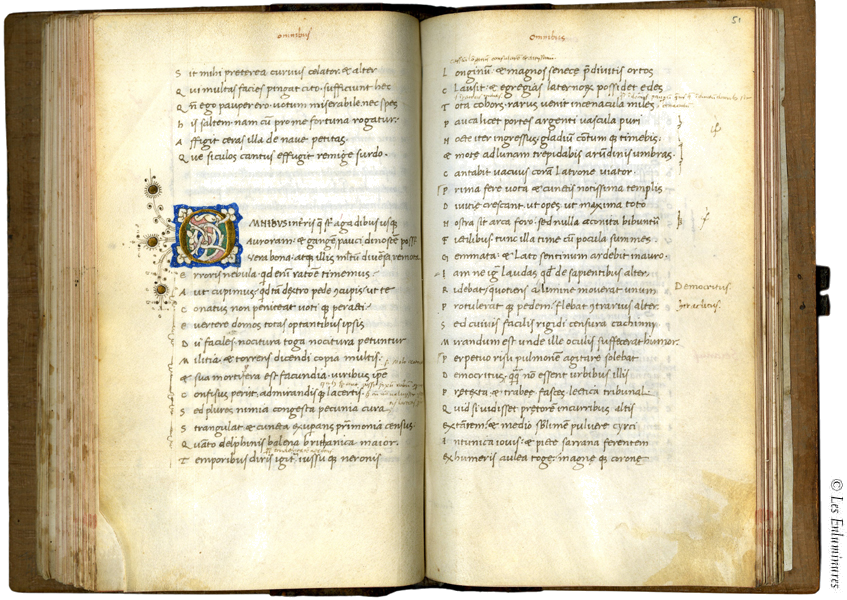 omnibus
S it mihi preterea curvus celator & alter
Q ui multas facies pingat cito sufficiunt hec
Q ñ ego pauper ero votum miserabile nec spes
h is saltem nam cũ pro me fortuna rogatur
A ffigit ceras illa de nave petitas
Q ve siculos cantus effugit remige surdo
MNIBVS in terris q̃ sũt a gadibus usq
Auroram & gangẽ pauci dinoscẽ poss̃
Vera bona atq illis mltũ diversa remota
E rroris nebula qd enĩ ratõe timemus
A ut cupimus qd tã dextro pede cõcipis ut te
C onatus non peniteat voti q peracti
E vertere domos totas optantibus ipsis
D ii faciles nocitura toga nocitura petuntur
M ilitia & torrens dicendi copia multis
& sua mortifera est facundia viribus ipẽ
C onfisus periit admirandisq lacertis
S ed plures nimia congesta pecunia cura
S trangulat & cuncta exupans prĩmonia census
Q uãto delphinis balena brithanica maior
T emporibus diris igit iussu q neronis
Omnibus
51
L onginũ & magnos senece p̃divitis ortos
C lausit & egregias laternoɿ possidet edes
T ota cohors rarus venit in cenacula miles
P auca licet portes argenti vascula puri
N octe iter ingressus gladiũ cõtum q timebis
& mote ad lunam trepidabis arũdinis umbras
C antabit vacuus corã latrone viator
P rima fere vota & cunctis notissima templis
D ivitie crescant ut opes ut maxima toto
N ostra sit arca foro sed nulla aconita bibuntũ
F ictilibus tunc illa time cũ pocula summes
G emmata & lato sentinum ardebit in auro
I am ne igĩ laudas qd de sapientibus alter
R idebat quotiens a limine moverat unum
Democritus.
P rotulerat q pedem flebat cõtrarius alter
S ed cuivis facilis rigidi censura cachinni
M irandum est unde ille oculis suffecerat humor
P erpetuo risu pulmonẽ agitare solebat
D emocritus q̃q nõ essent urbibus illis
P retexta & trabee fasces lectica tribunal
Q uid si vidisset pretorẽ in curribus altis
extãtem & medio sblimẽ pulvere circi
I n tunica iovis & picte sarrana ferentem
ex humeris aulea toge magne q corone
© Les Enluminures